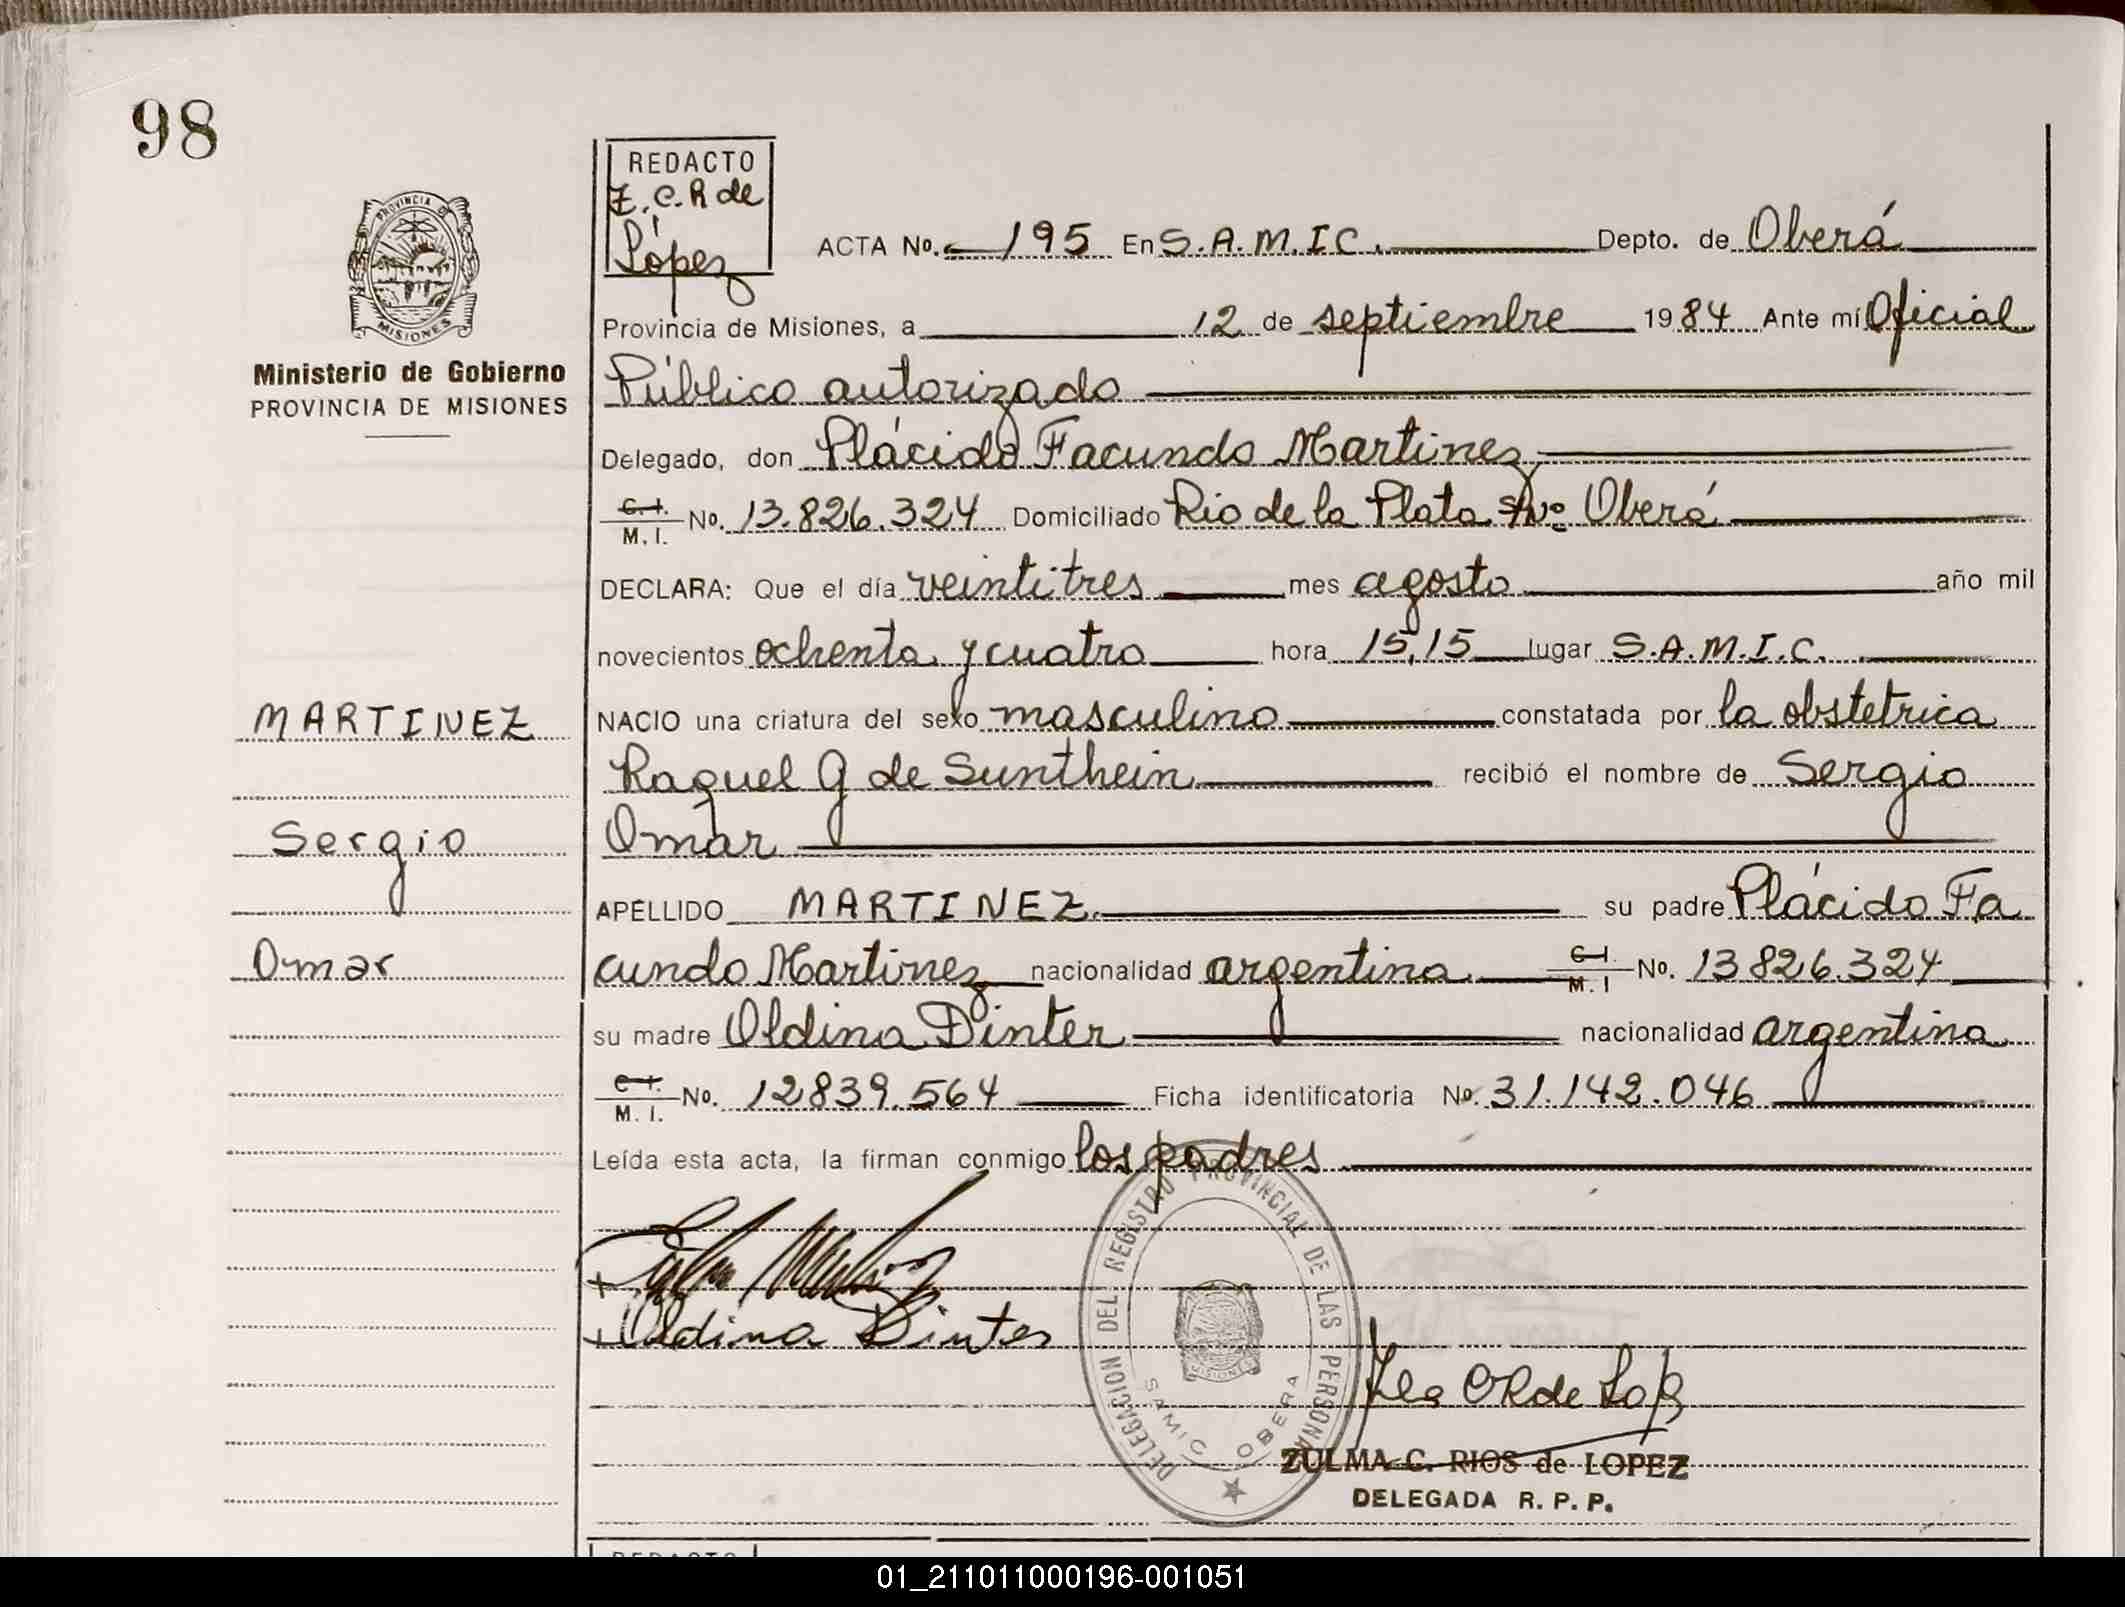 98
REDACTO
Z.C.R de
López
PROVINCIA D
MISIONES
Ministerio de Gobierno
PROVINCIA DE MISIONES
ACTA No. 195 En S.A.M.I.C. Depto. de Oberá
Provincia de Misiones, a 12 de septiembre 1984 Ante mí Oficial
Público autorizado
Delegado, don Plácido Facundo Martinez
C.I. M.I. No. 13.826.324 Domiciliado Rio de la Plata S/Nº Oberá
DECLARA: Que el día veintitres mes agosto año mil
novecientos ochenta y cuatro hora 15,15 lugar S.A.M.I.C.
MARTINEZ
NACIO una criatura del sexo masculino constatada por la obstetrica
Raquel G de Sunthein recibió el nombre de Sergio
Sergio
Omar
APELLIDO MARTINEZ su padre Plácido Fa
Omar
cundo Martinez nacionalidad argentina C.I. M.I No. 13826.324
su madre Oldina Dinter nacionalidad argentina
C.I. M.I. No. 12839.564 Ficha identificatoria No. 31.142.046
Leída esta acta, la firman conmigo los padres
Oldina Dinter
DELEGACION DEL REGISTRO PROVINCIAL DE LAS PERSONAS
MISIONES
SAMIC OBERA
ZULMA C. RIOS de LOPEZ
DELEGADA R. P. P.
REDACTO
01_211011000196-001051